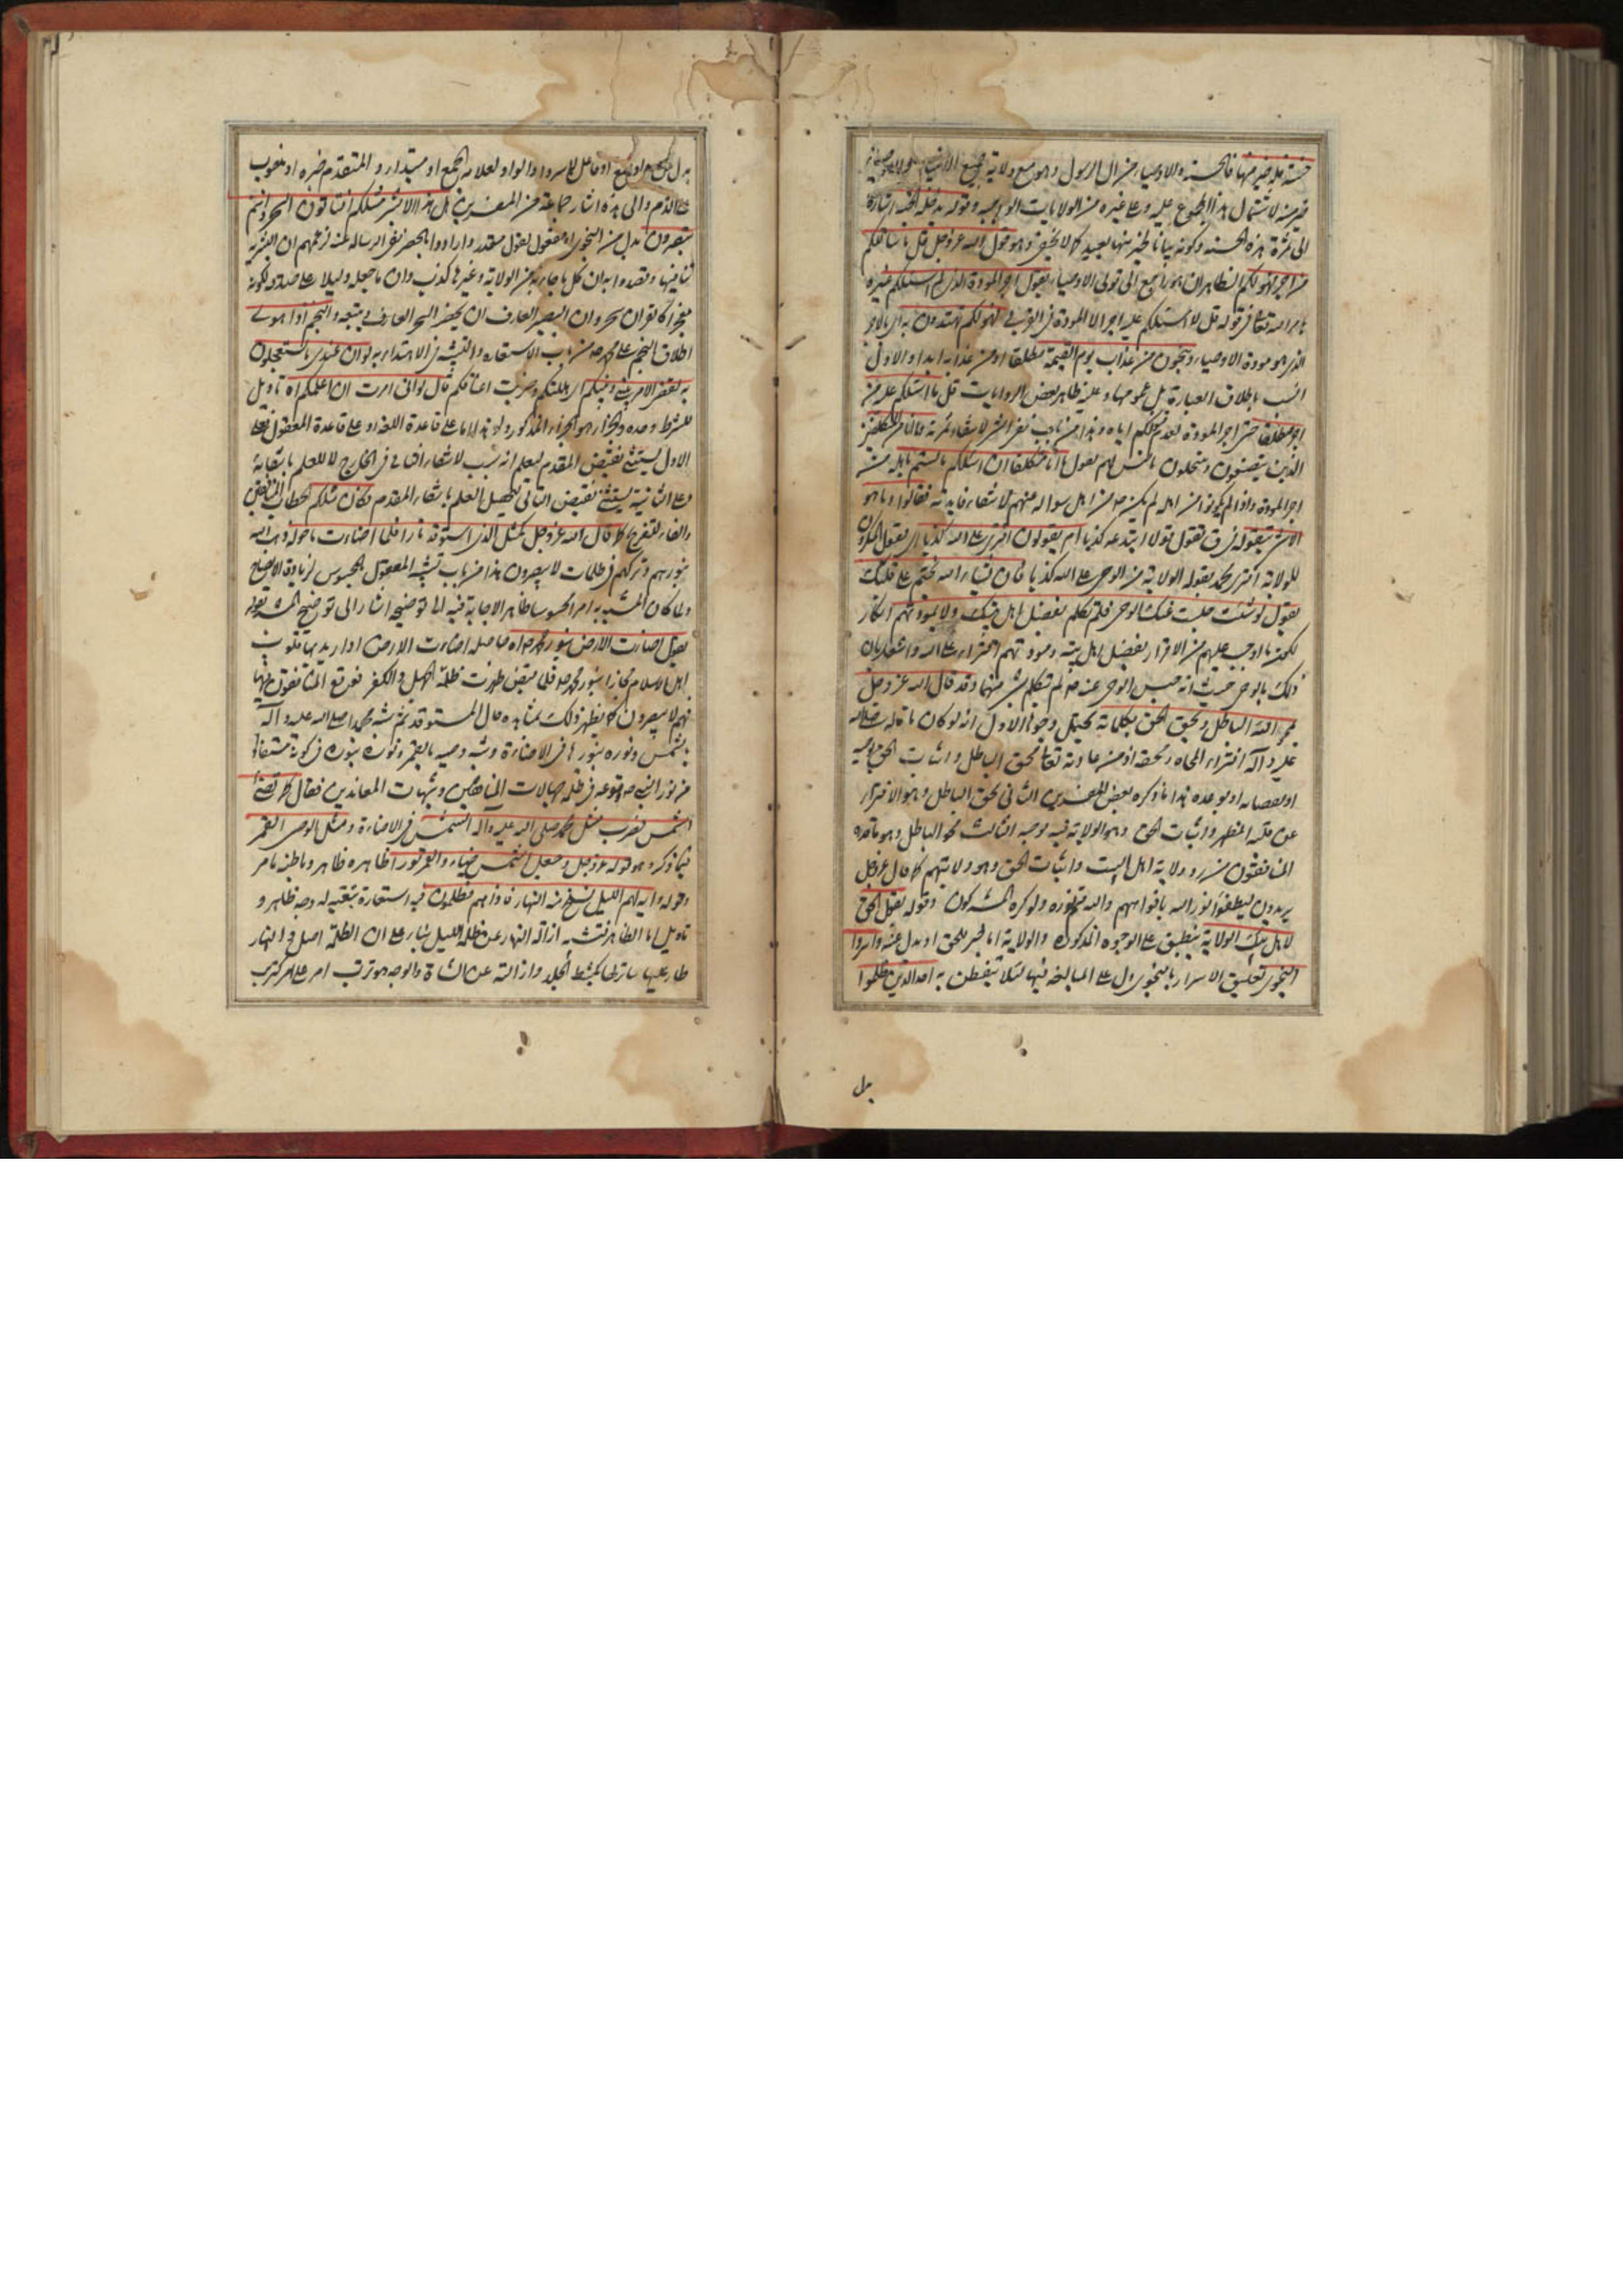 حسنة فله خير منها فالحسنة والاوصياء من ال الرسول وهو مع ولاية جميع الانبياء
خير منه لاشتمال هذا المجموع عليه وعلى غيره من الولايات الواجبة وقوله يدخله الجنة اشارة
الى ثمرة هذه الحسنة وكونه بيانا لخير منها بعيد كما لا يخفى وهو قول الله عز وجل قل ما سالتكم
من اجر فهو لكم الظاهر ان هو راجع الى تولى الاوصياء يقول اجر المودة الذى لم اسئلكم غيره
ما مر الله تعالى فى قوله قل لا اسئلكم عليه اجرا الا المودة فى القربى فهو لكم تهتدون به اى بالاجر
الذى هو مودة الاوصياء وتنجون من عذاب يوم القيمة مطلقا او من عذابه ابدا والاول
انسب باطلاق العبارة بل عمومها وعليه ظاهر بعض الروايات قل ما اسئلكم عليه من
اجر مطلقا حتى اجر المودة لعدم اياه وهذا من باب نفى الشئ لانتفاء ثمرته وما انا من المتكلفين
الذين يتصنعون وينتحلون ما ليس لهم يقول ما انا متكلفا ان اسئلكم ما لستم باهله من
اجر المودة واذا لم يكونوا من اهله لم يكن من اهل سواله عنهم لانتفاء فايدته فقالوا وما هو
الا شئ يتقوله اى يقول قولا ابتدعه كذبا ام يقولون افترى على الله كذبا اى يقول المنكرون
للولاية افترى محمد بقوله الولاية من الوحى على الله كذبا فان يشاء الله يختم على قلبك
يقول لو شئت حبست عنك الوحى فلم تكلم بفضل اهل بيتك ولا بمودتهم انكار
لكون ما اوجب عليهم من الاقرار بفضل اهل بيته ومودتهم افتراء على الله واشعار بان
ذلك بالوحى حيث انه حبس الوحى عنه لم يتكلم بشئ منهما وقد قال الله عز وجل
يمحو الله الباطل ويحق الحق بكلماته يحتمل وجوها الاول انه لو كان ما قاله صلى الله
عليه وآله افتراء لمحاه ومحقه اذ من عادته تعالى محق الباطل واثبات الحق بوحيه
او بقضائه او بوعده هذا ما ذكره بعض المفسرين الثانى محق الباطل وهو الافتراء
عن قلبه المطهر واثبات الحق وهو الولاية فيه بوحيه الثالث محو الباطل وهو ما قصده
المنافقون من رد ولاية اهل البيت واثبات الحق وهو ولايتهم كما قال عز وجل
يريدون ليطفئوا نور الله بافواههم والله متم نوره ولو كره المشركون وقوله يقول الحق
لاهل بيتك الولاية ينطبق على الوجوه المذكورة والولاية اما خبر للحق او بدل عنه واسروا
النجوى تعليق الاسرار بالنجوى دل على المبالغة فيها لئلا يتفطن به احد الذين ظلموا
بل
بدل من او فاعل لاسروا والواو لعلامة الجمع او مبتداء والمتقدم خبره او منصوب
على الذم والى هذه اشار جماعة من المفسرين هل هذا الا بشر مثلكم افتاتون السحر وانتم
تبصرون بدل من النجوى او مفعول لقول مقدر وارادوا بالحصر نفى الرسالة عنه لزعمهم ان البشرية
تنافيها وقصدوا به ان كل ما جاء به من الولاية وغيرها كذب وان ما جعله دليلا على صدقه لكونه
معجزا كالقران سحر وان البصير العارف ان يحضر السحر العارف ويتبعه والنجم اذا هوى
اطلاق النجم على محمد من باب الاستعارة والتشبيه فى الاهتداء به لو ان عندى ما تستعجلون
به لقضى الامر بينى وبينكم اى اهلكتكم وضربت اعناقكم قال لو انى امرت ان اعلمكم اه تاويل
للشرط وحده والجزاء هو الجزاء المذكور ولو هذه اما على قاعدة اللغة او على قاعدة المعقول فعلى
الاول يستثنى نقيض المقدم ليعلم انه سبب لانتفاء التالى فى الخارج لا للعلم بانتفائه
وعلى الثانية يستثنى نقيض التالى لتحصيل العلم بانتفاء المقدم فكان مثلكم الخطاب للمنافقين
والفاء للتفريع كما قال الله عز وجل كمثل الذى استوقد نارا فلما اضاءت ما حوله ذهب الله
بنورهم وتركهم فى ظلمات لا يبصرون هذا من باب تشبيه المعقول بالمحسوس لزيادة الايضاح
ولما كان المشبه به امرا محسوسا ظاهرا لا حاجة فيه الى توضيحه اشار الى توضيح المشبه بقوله
يقول اضاءت الارض بنور محمد اه حاصله اضاءت الارض اذا اريد بها قلوب
اهل الاسلام مجازا بنور محمد فلما قبض ظهرت ظلمة الجهل والكفر فوقع المنافقون فيها
فهم لا يبصرون كما يظهر ذلك بمشاهدة حال المستوقد ثم شبه محمدا صلى الله عليه وآله
بالشمس ونوره بنورها فى الاضاءة وشبه وصيه بالقمر ونوره بنوره فى كونه مستفادا
من نور الشمس وقوعه فى ظلمة جهالات المنافقين وشبهات المعاندين فقال كما تضئ
الشمس فضرب مثل محمد صلى الله عليه وآله الشمس فى الاضاءة ومثل الوصى القمر
فيما ذكر وهو قوله عز وجل وجعل الشمس ضياء والقمر نورا ظاهره ظاهر وباطنه ما مر
وقوله واية لهم الليل نسلخ منه النهار فاذا هم مظلمون فيه استعارة تبعية له وجه ظاهر و
تاويل اما الظاهر فتشبيه ازالة النهار عن ظلمة الليل بناء على ان الظلمة اصل والنهار
طار عليها ساتر لها بكشط الجلد وازالته عن الشاة والوجه هو ترتب امر على امر كترتب